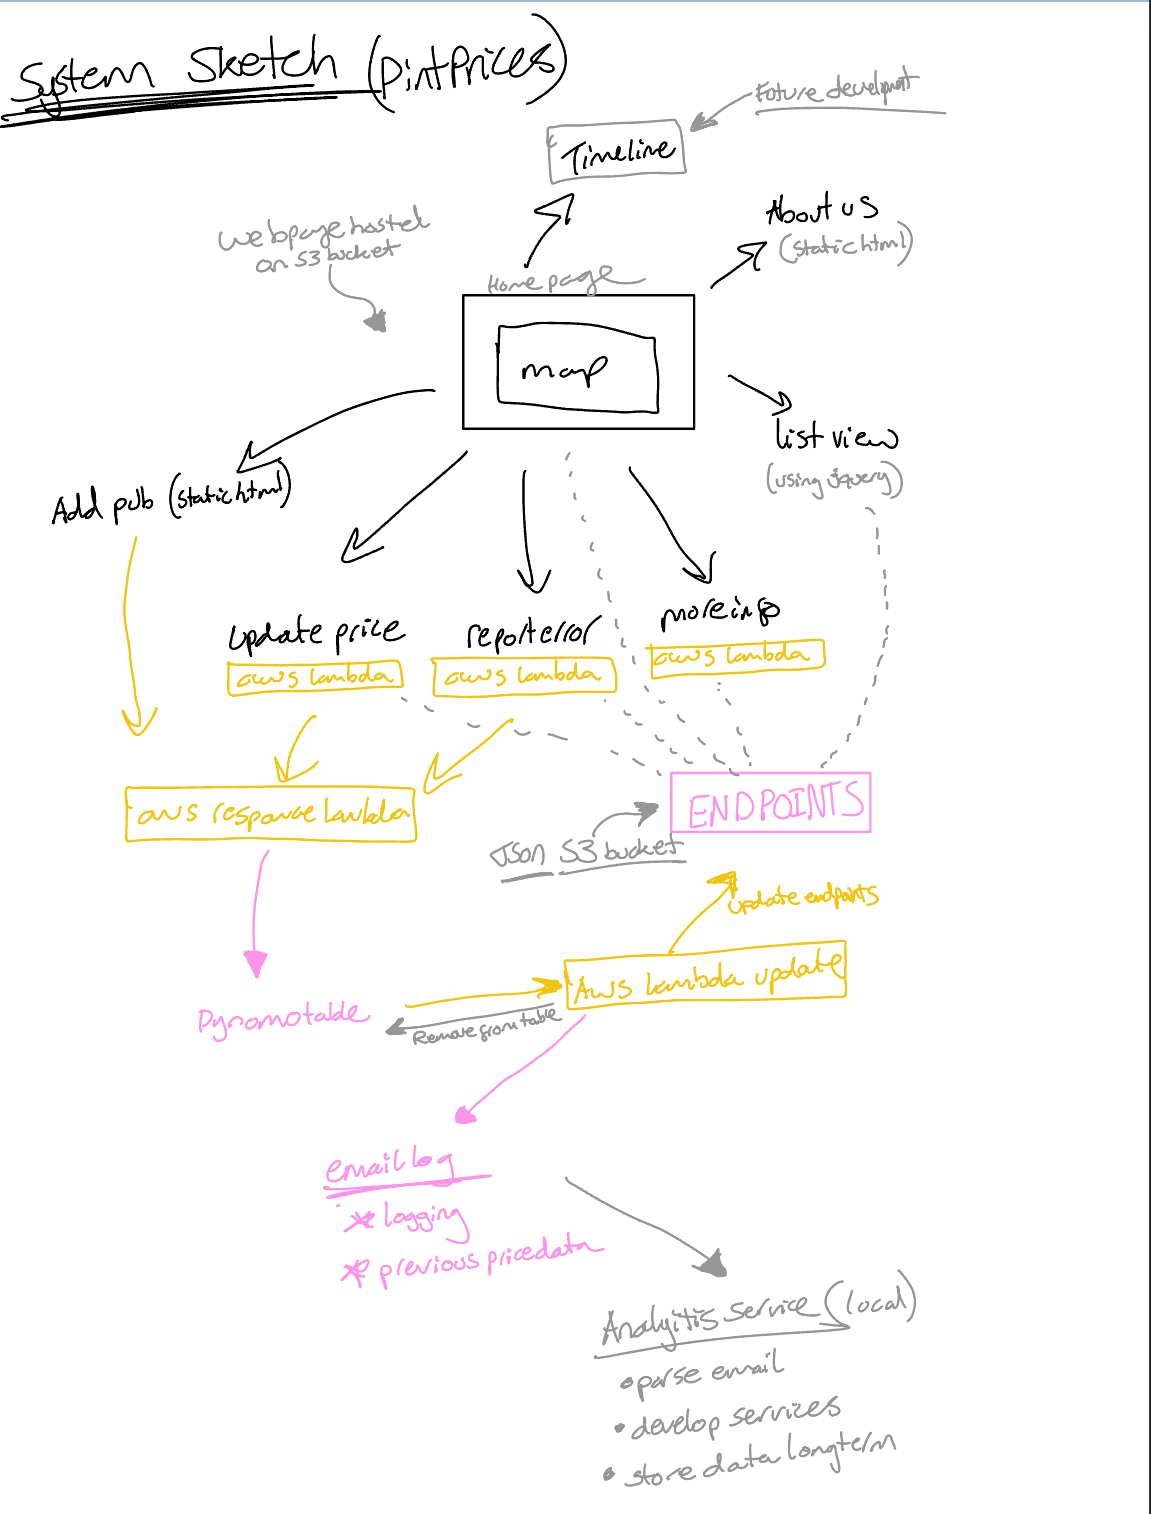 System Sketch (PintPrices)
Future develipmt
Timeline
About us
(static html)
Webpage hosted
on S3 bucket
Home page
map
list view
(using jquery)
Add pub (static html)
update price
aws lambda
report error
aws lambda
more info
aws lambda
aws response lambda
ENDPOINTS
Json S3 bucket
update endpoints
Aws lambda update
Dynomotable
Remove from table
email log
* logging
* previous price data
Analyitis service (local)
• parse email
• develop services
• store data longterm